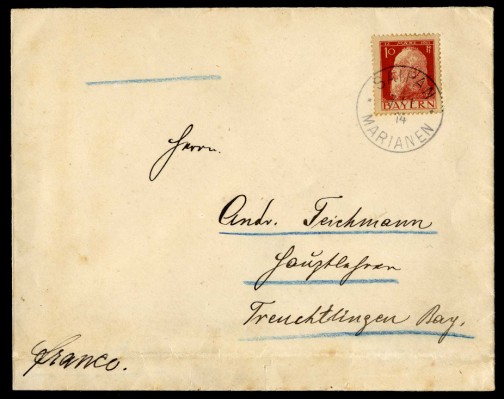 10 10
BAYERN
SAIPAN
14
MARIANEN
Herrn.
Andr. Teichmann
Hauptlehrer
Treuchtlingen Bay.
Franco.